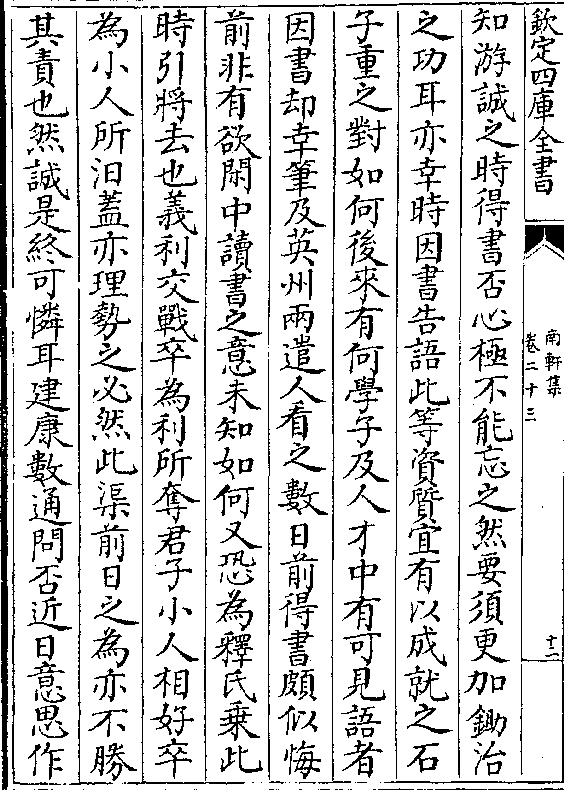 欽定四庫全書
南軒集
卷二十三
十二
知游誠之時得書否心極不能忘之然要須更加鋤治
之功耳亦幸時因書告語此等資質宜有以成就之石
子重之對如何後來有何學子及人才中有可見語者
因書却幸筆及英州兩遣人看之數日前得書頗似悔
前非有欲閑中讀書之意未知如何又恐為釋氏乗此
時引將去也義利交戰卒為利所奪君子小人相好卒
為小人所汩蓋亦理勢之必然此渠前日之為亦不勝
其責也然誠是終可憐耳建康數通問否近日意思作